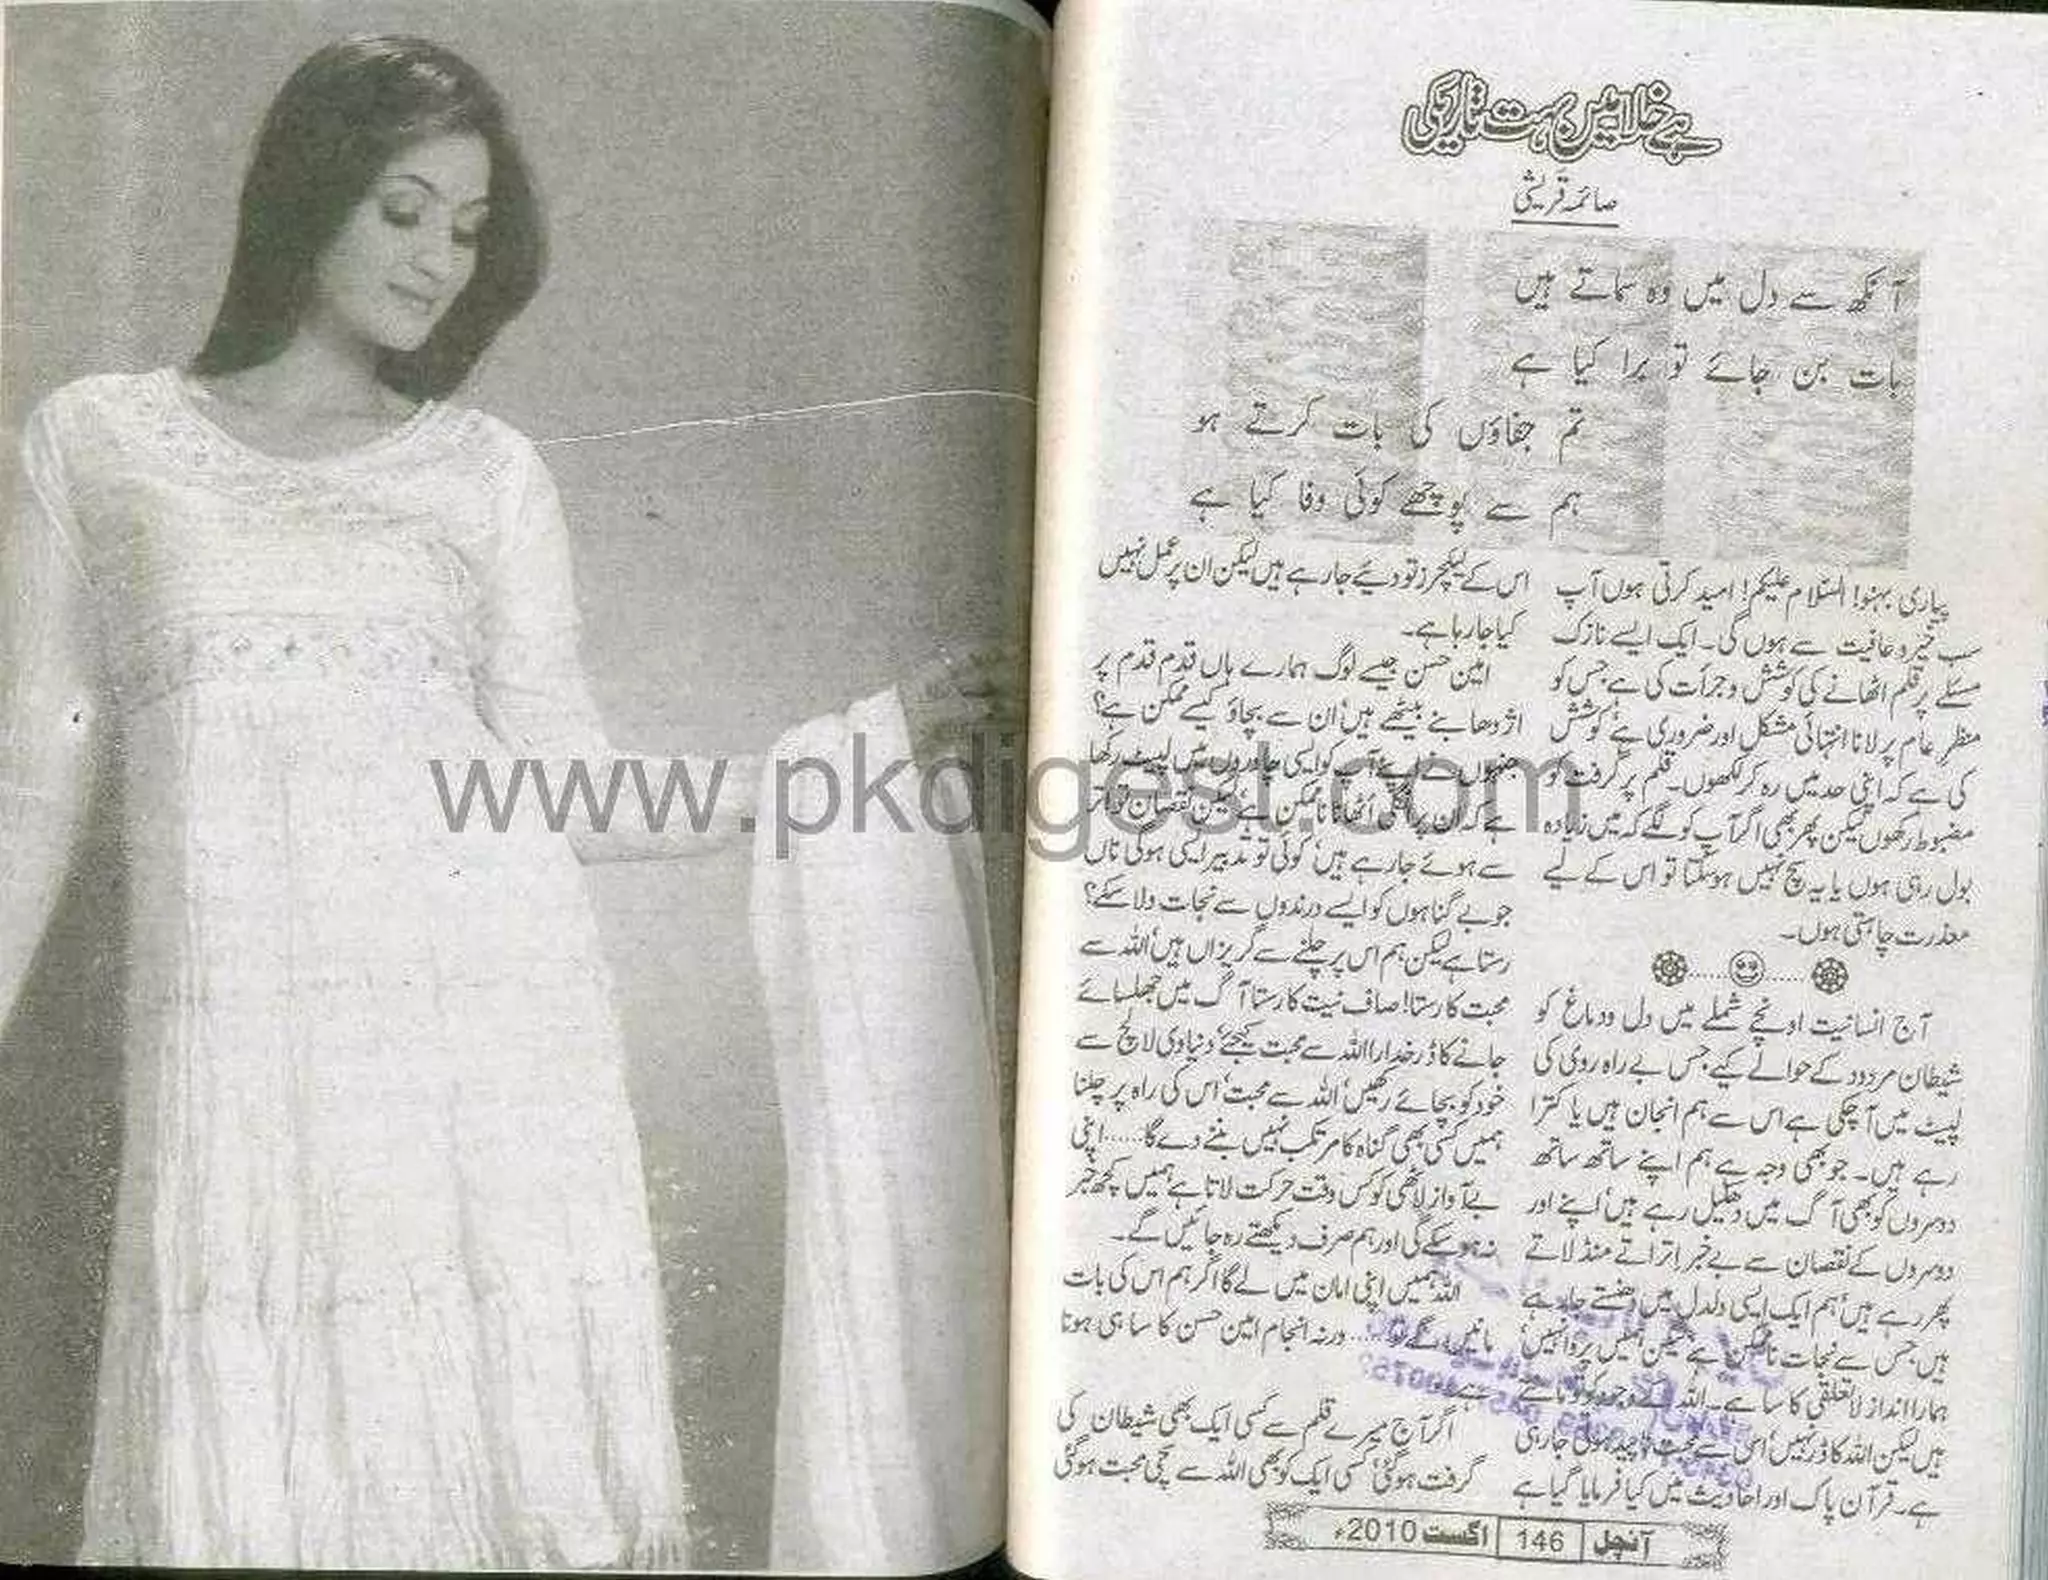 ہے خلا میں بہت تاریکی
صائمہ قریشی
آنکھ سے دل میں وہ سماتے ہیں
بات بن جائے تو برا کیا ہے
تم جفاؤں کی بات کرتے ہو
ہم سے پوچھے کوئی وفا کیا ہے
پیاری بہنو! السّلام علیکم! امید کرتی ہوں آپ
سب خیر و عافیت سے ہوں گی۔ ایک ایسے نازک
مسئلے پر قلم اٹھانے کی کوشش و جرأت کی ہے جس کو
منظر عام پر لانا انتہائی مشکل اور ضروری ہے' کوشش
کی ہے کہ اپنی حد میں رہ کر لکھوں۔ قلم پر گرفت کو
مضبوط رکھوں لیکن پھر بھی اگر آپ کو لگے کہ میں زیادہ
بول رہی ہوں یا یہ سچ نہیں ہو سکتا تو اس کے لیے
معذرت چاہتی ہوں۔
آج انسانیت اونچے شملے میں دل و دماغ کو
شیطان مردود کے حوالے کیے جس بے راہ روی کی
لپیٹ میں آ چکی ہے اس سے ہم انجان ہیں یا کترا
رہے ہیں۔ جو بھی وجہ ہے ہم اپنے ساتھ ساتھ
دوسروں کو بھی آگ میں دھکیل رہے ہیں' اپنے اور
دوسروں کے نقصان سے بے خبر اتراتے منڈلاتے
پھر رہے ہیں' ہم ایک ایسی دلدل میں دھنستے جا رہے
ہیں جس سے نجات ناممکن ہے لیکن ہمیں پروا نہیں'
ہمارا انداز لا تعلقی کا سا ہے۔ اللہ کے وجود کو تو مانتے
ہیں لیکن اللہ کا ڈر نہیں' اس سے محبت ناپید ہوتی جا رہی
ہے۔ قرآن پاک اور احادیث میں کیا فرمایا گیا ہے
اس کے لیکچرز تو دیئے جا رہے ہیں لیکن ان پر عمل نہیں
کیا جا رہا ہے۔
امین حسن جیسے لوگ ہمارے ہاں قدم قدم پر
اژدھا بنے بیٹھے ہیں' ان سے بچاؤ کیسے ممکن ہے؟
جنہوں نے اپنے آپ کو ایسی چادروں میں لپیٹ رکھا
ہے کہ ان پر انگلی اٹھانا ناممکن ہے' لیکن نقصان تو اتر
سے ہوئے جا رہے ہیں' کوئی تو تدبیر ایسی ہو گی ناں
جو بے گناہوں کو ایسے درندوں سے نجات دلا سکے؟
رستا ہے لیکن ہم اس پر چلنے سے گریزاں ہیں' اللہ سے
محبت کا رستا! صاف نیت کا رستا آگ میں جھلسائے
جانے کا ڈر خدارا اللہ سے محبت کیجئے' دنیاوی لالچ سے
خود کو بچائے رکھیں' اللہ سے محبت' اس کی راہ پر چلنا
ہمیں کسی بھی گناہ کا مرتکب نہیں بننے دے گا...... اپنی
بے آواز لاٹھی کو کس وقت حرکت لاتا ہے ہمیں کچھ خبر
نہ ہو سکے گی اور ہم صرف دیکھتے رہ جائیں گے۔
اللہ ہمیں اپنی امان میں لے گا اگر ہم اس کی بات
مانیں گے تو...... ورنہ انجام امین حسن کا سا ہی ہوتا
ہے۔
اگر آج میرے قلم سے کسی ایک بھی شیطان کی
گرفت ہو گئی' کسی ایک کو بھی اللہ سے سچی محبت ہو گئی
آنچل 146 اگست 2010ء
www.pkdigest.com